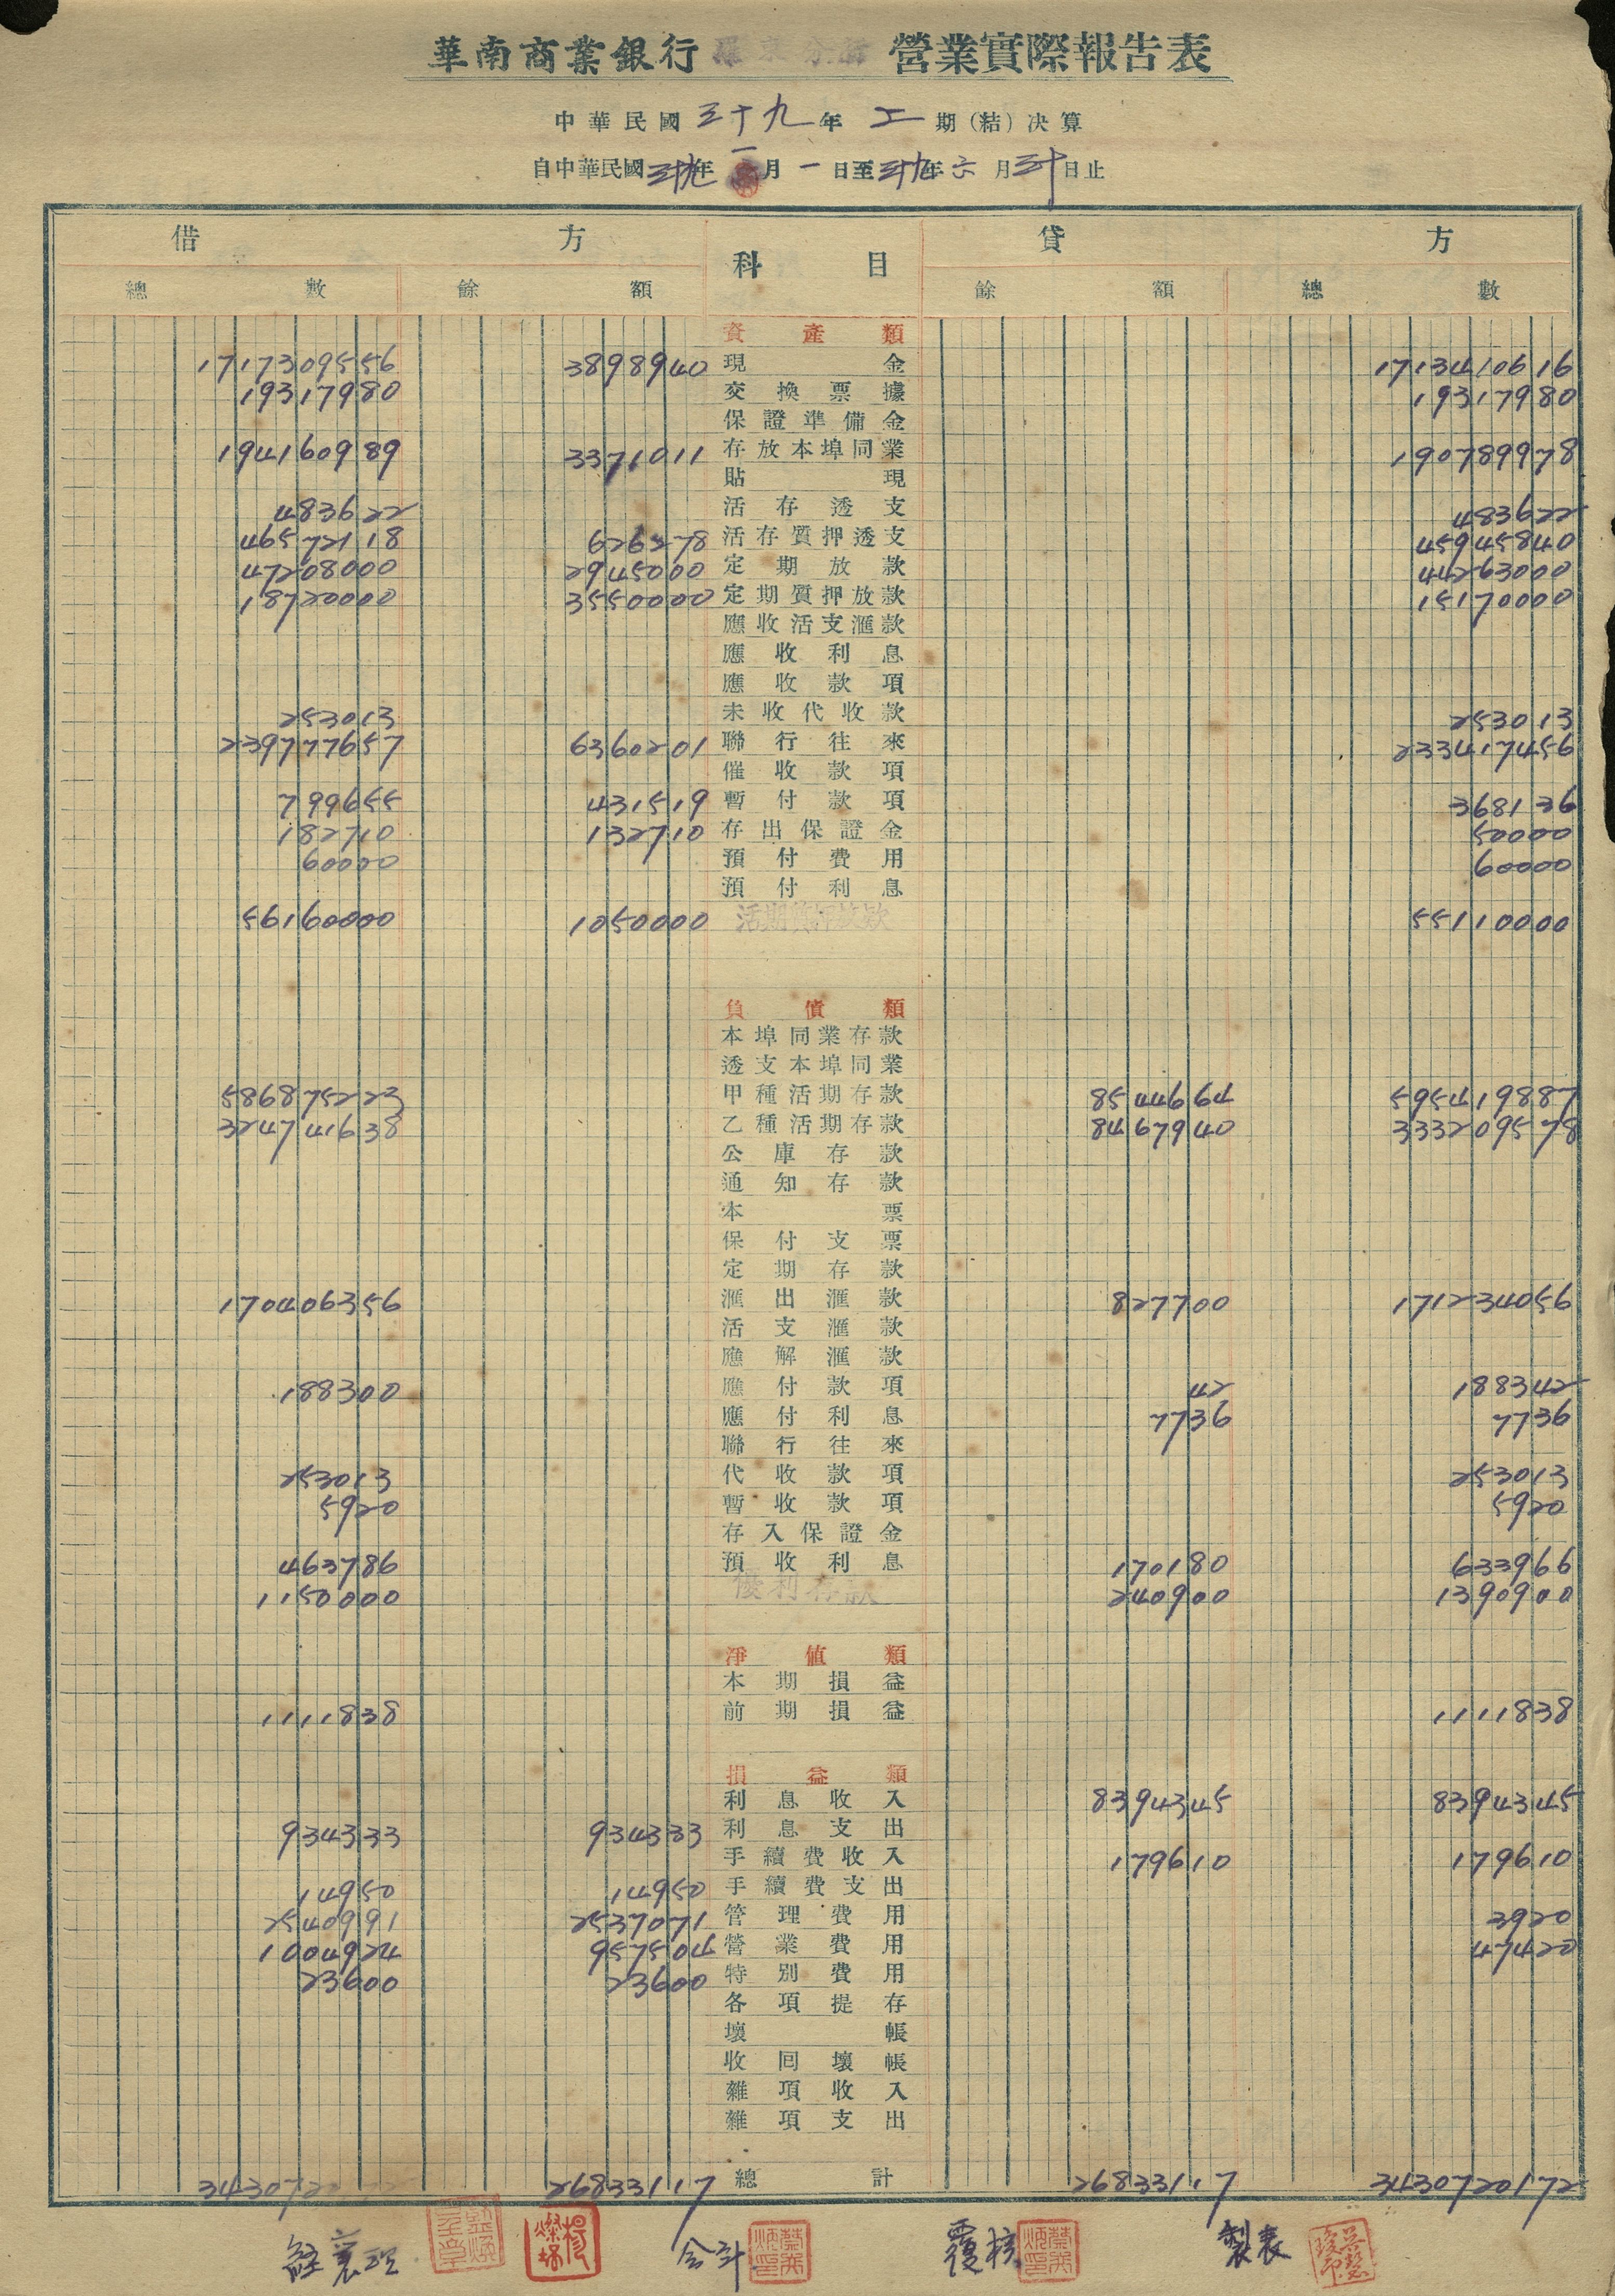 華南商業銀行 羅東分行 營業實際報告表
中華民國 三十九 年 上 期(結)決算
自中華民國 三九 年 一 月 一 日至 三九 年 六 月 三十 日止
借方 科目 貸方
總數 餘額 餘額 總數
資產類
1717309556 3898940 現金 1713410616
19317980 交換票據 19317980
保證準備金
194160989 3371011 存放本埠同業 190789978
貼現
483622 活存透支 483622
46572118 626278 活存質押透支 45945840
47208000 2945000 定期放款 44263000
18720000 3550000 定期質押放款 15170000
應收活支滙款
應收利息
應收款項
253013 未收代收款 253013
239777657 6360201 聯行往來 233417456
催收款項
799655 431519 暫付款項 368136
182710 132710 存出保證金 50000
60000 預付費用 60000
預付利息
56160000 1050000 活期質押放款 55110000
負債類
本埠同業存款
透支本埠同業
586875223 甲種活期存款 8544664 595419887
324741638 乙種活期存款 8467940 333209578
公庫存款
通知存款
本票
保付支票
定期存款
170406356 滙出滙款 827700 171234056
活支滙款
應解滙款
188300 應付款項 42 188342
應付利息 7736 7736
聯行往來
253013 代收款項 253013
5920 暫收款項 5920
存入保證金
463786 預收利息 170180 633966
1150000 優利存款 240900 1390900
淨值類
本期損益
1111838 前期損益 1111838
損益類
利息收入 8394345 8394345
934333 934333 利息支出
手續費收入 179610 179610
14950 14950 手續費支出
2540991 2537071 管理費用 3920
1004924 957504 營業費用 47420
23600 23600 特別費用
各項提存
壞帳
收回壞帳
雜項收入
雜項支出
3430720172 26833117 總計 26833117 3430720172
經襄理 會計 覆核 製表